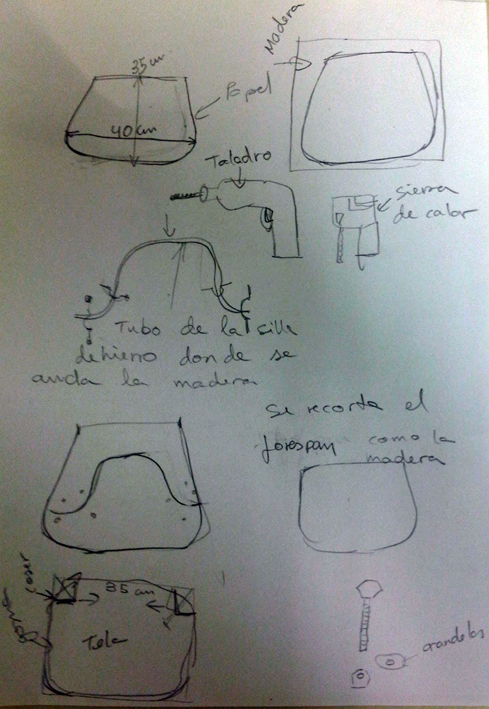 35 cm
Madera
Papel
40 cm
Taladro
sierra
de calar
Tubo de la silla
de hierro donde se
la madera
se recorta el
forespan como la
madera
coser
35 cm
Tela
arandelas